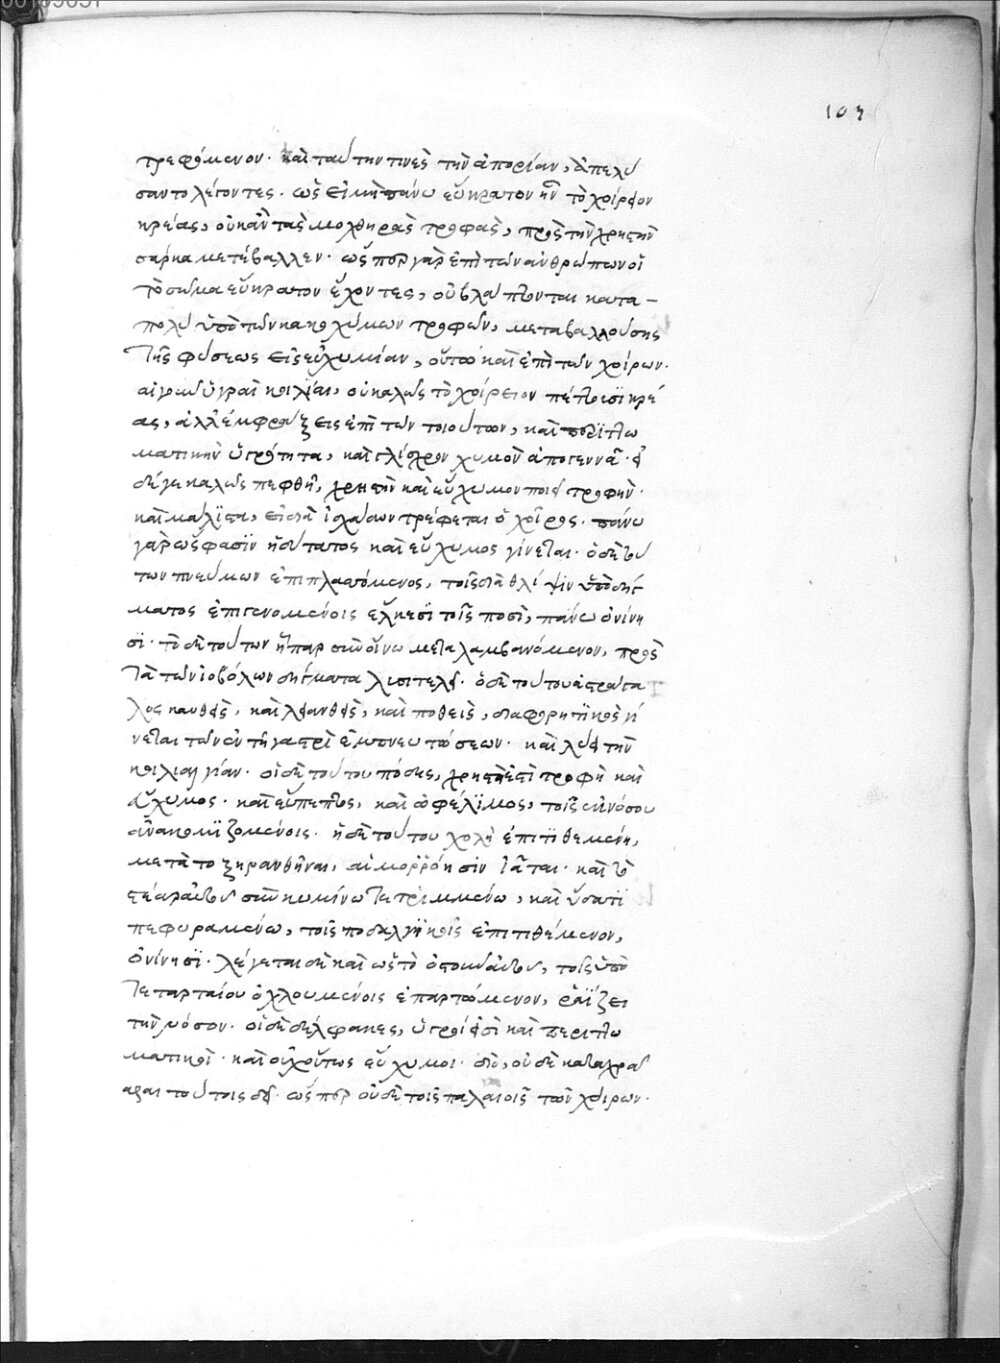 103
τρεφόμενον. καὶ ταύτην τινὲς τὴν ἀπορίαν, ἀπελύ
σαντο λέγοντες. ὡς εἰ μὴ πάνυ εὔκρατον ἦν τὸ χοίρειον
κρέας, οὐκ ἂν τὰς μοχθηρὰς τροφὰς, πρὸς τὴν χρηστὴν
σάρκα μετέβαλλεν. ὥσπερ γὰρ ἐπὶ τῶν ἀνθρώπων οἱ
τὸ σῶμα εὔκρατον ἔχοντες, οὐ βλάπτονται κατα-
πολὺ ὑπὸ τῶν κακοχύμων τροφῶν, μεταβαλλούσης
τῆς φύσεως εἰς εὐχυμίαν, οὕτω καὶ ἐπὶ τῶν χοίρων.
αἱ γοῦν ὑγραὶ κοιλίαι, οὐ καλῶς τὸ χοίρειον πέπτουσι κρέ
ας, ἀλλ' ἐμφράξεις ἐπὶ τῶν τοιούτων, καὶ περιττω
ματικὴν ὑγρότητα, καὶ γλίσχρον χυμὸν ἀπογεννᾶ. εἰ
δέ γε καλῶς πεφθῇ, χρηστὴν καὶ εὔχυμον ποιεῖ τροφήν.
καὶ μάλιστα, εἰ διὰ ἰσχάδων τρέφεται ὁ χοῖρος. πάνυ
γὰρ ὥς φασιν ἥδιστος καὶ εὔχυμος γίνεται. ὁ δὲ
τῶν πνεύμων ἐπιπλασσόμενος, τοῖς διὰ θλίψιν ὑποδή
ματος ἐπιγενομένοις ἕλκεσι τοῖς ποσὶ, πάνυ ὀνίνη
σι. τὸ δὲ τούτων ἧπαρ σὺν οἴνω μεταλαμβανόμενον, πρὸς
τὰ τῶν ἰοβόλων δήγματα λυσιτελεῖ. ὁ δὲ τούτου ἀστράγα
λος καυθεὶς, καὶ λειανθεὶς, καὶ ποθεὶς, διαφορητικὸς γί
νεται τῶν ἐν τῇ γαστρὶ ἐμπνευματώσεων. καὶ λύει τὴν
οἱ δὲ τούτου πόδες, χρηστή ἐστι τροφὴ καὶ
εὔχυμος. καὶ εὔπεπτος, καὶ ὠφέλιμος, τοῖς ἐκ νόσου
ἀνακομιζομένοις. ἡ δὲ τούτου χολὴ ἐπιτιθεμένη,
μετὰ τὸ ξηρανθῆναι, αἱμορρόησιν ἰᾶται. καὶ τὸ
στέαρ αὐτοῦ σὺν κυμίνω τετριμμένω, καὶ ὕδατι
πεφυραμένω, τοῖς ποδαλγικοῖς ἐπιτιθέμενον,
ὀνίνησι. λέγεται δὲ καὶ ὡς τὸ ὀστοῦν αὐτοῦ, τοῖς ὑπὸ
τεταρταίου ὀχλουμένοις ἐπαρτώμενον, ῥαΐζει
τὴν νόσον. οἱ δὲ δέλφακες, ὑγροί εἰσι καὶ περιττω
ματικοὶ. καὶ οὐχ οὕτως εὔχυμοι. διὸ, οὐδὲ καταχρᾶ
σθαι τούτοις δεῖ. ὥσπερ οὐδὲ τοῖς παλαιοῖς τῶν χοίρων.